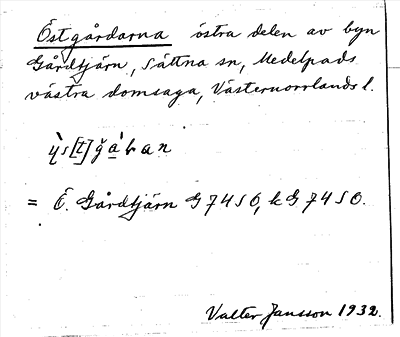 Östgårdarna östra delen av byn
Gårdtjärn, Sättna sn, Medelpads
västra domsaga, Västernorrlands l.
= Ö. Gårdtjärn G 7450, kG 7450.
Valter Jansson 1932.